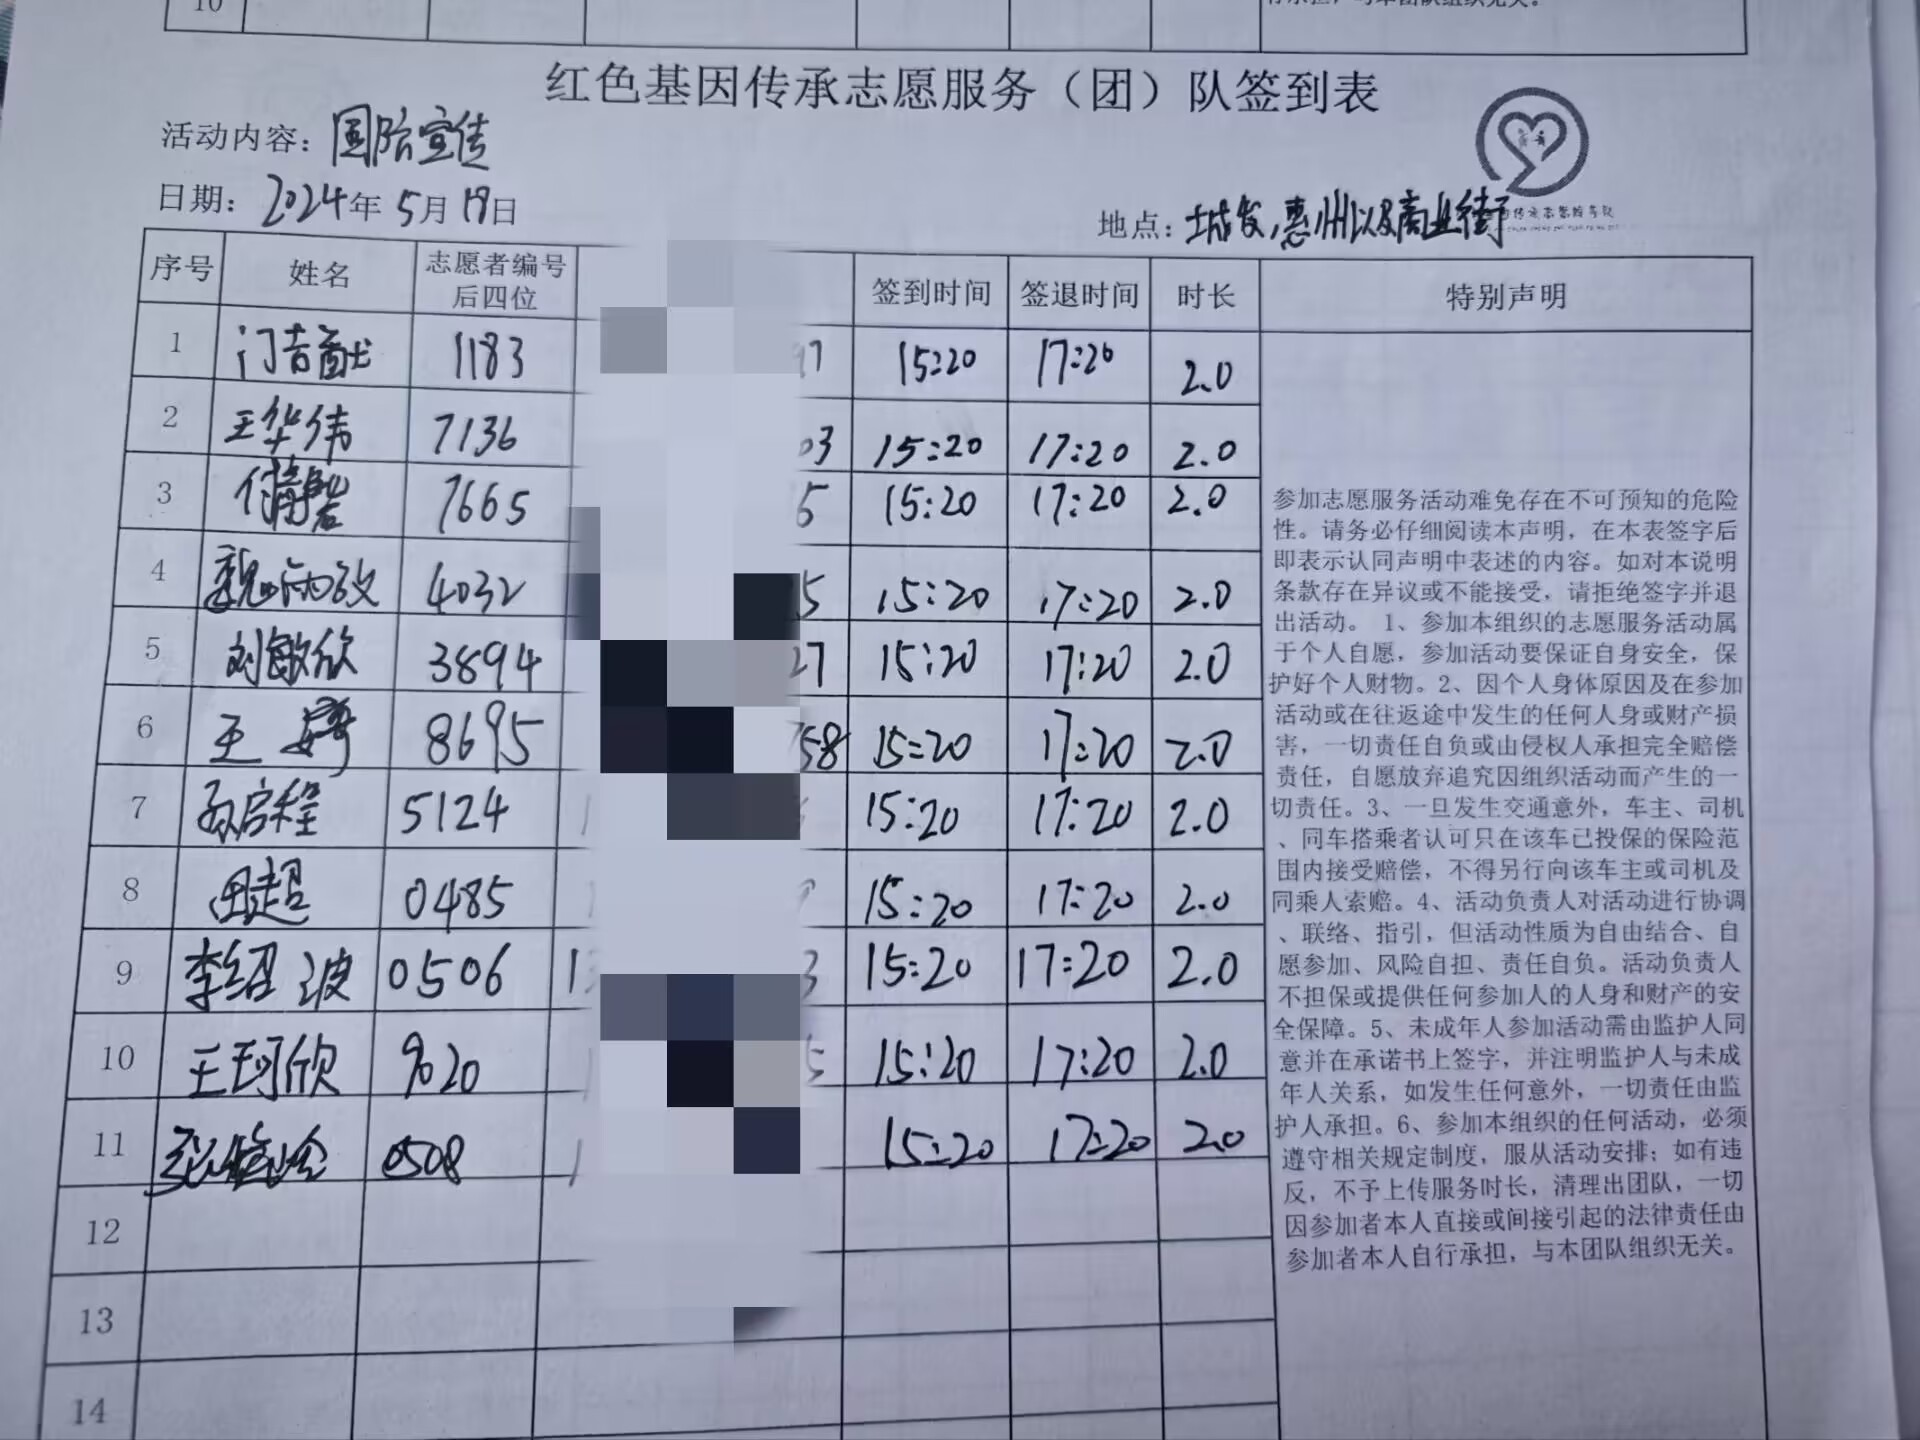 10
红色基因传承志愿服务（团）队签到表
活动内容：国防宣传
日期：2024年5月19日
地点：城发，惠州以及商业街
序号 姓名 志愿者编号后四位 签到时间 签退时间 时长 特别声明
1 1183 97 15:20 17:20 2.0
2 王华伟 7136 03 15:20 17:20 2.0
3 7665 5 15:20 17:20 2.0
4 4032 5 15:20 17:20 2.0
5 刘敏欣 3894 27 15:20 17:20 2.0
6 王婷 8695 758 15:20 17:20 2.0
7 孙启程 5124 15:20 17:20 2.0
8 田超 0485 15:20 17:20 2.0
9 李绍波 0506 3 15:20 17:20 2.0
10 王珂欣 9020 5 15:20 17:20 2.0
11 0508 15:20 17:20 2.0
12
13
14
参加志愿服务活动难免存在不可预知的危险
性。请务必仔细阅读本声明，在本表签字后
即表示认同声明中表述的内容。如对本说明
条款存在异议或不能接受，请拒绝签字并退
出活动。 1、参加本组织的志愿服务活动属
于个人自愿，参加活动要保证自身安全，保
护好个人财物。2、因个人身体原因及在参加
活动或在往返途中发生的任何人身或财产损
害，一切责任自负或由侵权人承担完全赔偿
责任，自愿放弃追究因组织活动而产生的一
切责任。3、一旦发生交通意外，车主、司机
、同车搭乘者认可只在该车已投保的保险范
围内接受赔偿，不得另行向该车主或司机及
同乘人索赔。4、活动负责人对活动进行协调
、联络、指引，但活动性质为自由结合、自
愿参加、风险自担、责任自负。活动负责人
不担保或提供任何参加人的人身和财产的安
全保障。5、未成年人参加活动需由监护人同
意并在承诺书上签字，并注明监护人与未成
年人关系，如发生任何意外，一切责任由监
护人承担。6、参加本组织的任何活动，必须
遵守相关规定制度，服从活动安排；如有违
反，不予上传服务时长，清理出团队，一切
因参加者本人直接或间接引起的法律责任由
参加者本人自行承担，与本团队组织无关。